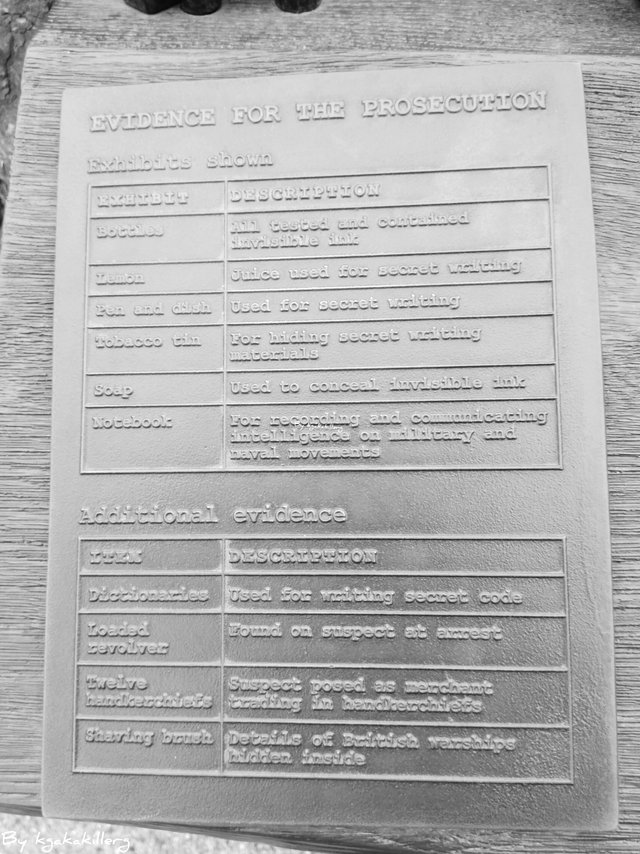 EVIDENCE FOR THE PROSECUTION
Exhibits shown
EXHIBIT DESCRIPTION
Bottles All tested and contained
invisible ink
Lemon Juice used for secret writing
Pen and dish Used for secret writing
Tobacco tin For hiding secret writing
materials
Soap Used to conceal invisible ink
Notebook For recording and communicating
intelligence on military and
naval movements
Additional evidence
ITEM DESCRIPTION
Dictionaries Used for writing secret code
Loaded
revolver Found on suspect at arrest
Twelve
handkerchiefs Suspect posed as merchant
trading in handkerchiefs
Shaving brush Details of British warships
hidden inside
By kgakakillerg